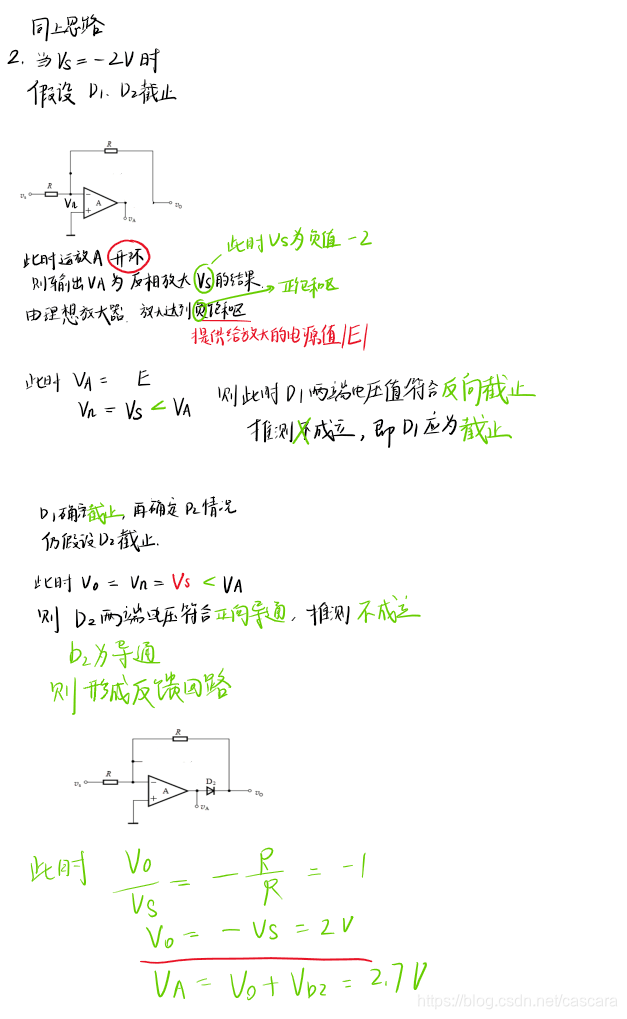 同上思路
2. 当 Vs = -2V 时
假设 D1、D2截止
R
R
vs
Vn
A
vA
vO
此时 Vs为负值 -2
此时运放A 开环
则输出VA为 反相放大 Vs 的结果.
正饱和区
由理想放大器. 放大达到负饱和区
提供给放大的电源值|E|
此时 VA = E
Vn = Vs < VA
则此时 D1两端电压值符合反向截止
推测不成立，即 D1应为截止
D1确定截止，再确定 D2情况
仍假设D2截止.
此时 Vo = Vn = Vs < VA
则 D2两端电压符合正向导通，推测 不成立
D2为导通
则 形成反馈回路
R
R
vs
A
D2
vA
vO
此时 Vo/Vs = - R/R = -1
Vo = - Vs = 2V
VA = Vo + VD2 = 2.7V
https://blog.csdn.net/cascara